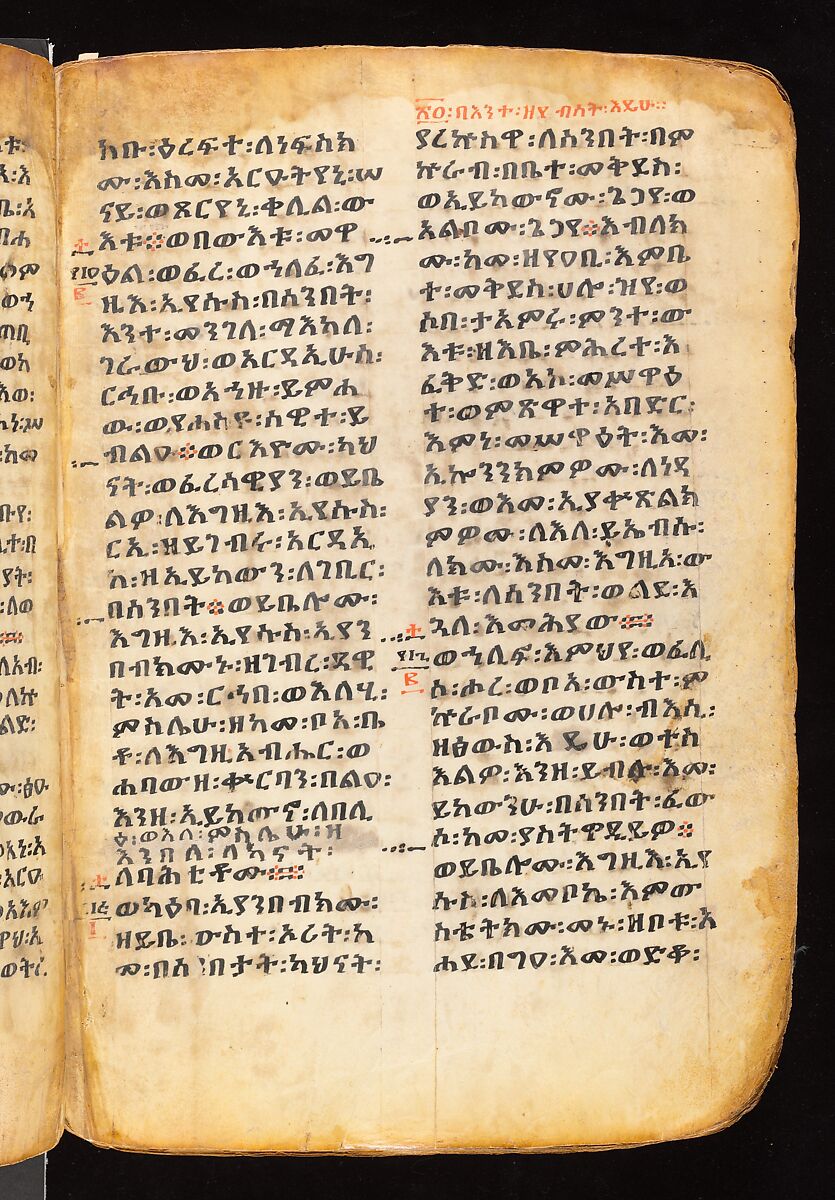 ክቡ፡ዕረፍተ፡ለነፍስክ
ሙ፡እስመ፡አርዑትየኒ፡ሠ
ናይ፡ወጾርየኒ፡ቀሊል፡ው
እቱ፨ወበውእቱ፡መዋ
ዕል፡ወፈረ፡ወኀለፈ፡እግ
ዚእ፡ኢየሱስ፡በሰንበት፡
እንተ፡መንገለ፡ማእከለ፡
ገራውህ፡ወአርዳኢሁስ፡
ርኅቡ፡ወአኀዙ፡ይምሐ
ዉ፡ወየሐስዩ፡ሰዊተ፡ይ
ብልዑ፨ወርእዮሙ፡ካህ
ናት፡ወፈረሳዊያን፡ወይቤ
ልዎ፡ለእግዚእ፡ኢየሱስ፡
ርኢ፡ዘይገብሩ፡አርዳኢ
ከ፡ዘኢይከውን፡ለገቢር፡
በሰንበት፨ወይቤሎሙ፡
እግዚእ፡ኢየሱስ፡ኢያን
በብክሙኑ፡ዘገብረ፡ዳዊ
ት፡አመ፡ርኅበ፡ወእለሂ፡
ምስሌሁ፡ዘከመ፡ቦአ፡ቤ
ቶ፡ለእግዚአብሔር፡ወ
ሐባውዘ፡ቍርባን፡በልዑ፡
እንዘ፡ኢይከውኖ፡ለበሊ
ዕ፡ወእለ፡ምስሌሁ፡ዘ
እንበለ፡ለካናት፡
ለባሕቲቶሙ፨
ወካዕበ፡ኢያንበብክሙ፡
ዘይቤ፡ውስተ፡ኦሪት፡ከ
መ፡በሰንበታት፡ካህናት፡
በእንተ፡ዘየብሰት፡እዴሁ፨
ያረኵስዋ፡ለሰንበት፡በም
ኵራብ፡በቤተ፡መቅደስ፡
ወኢይከውኖሙ፡ጌጋየ፡ወ
አልቦሙ፡ጌጋየ፨እብለክ
ሙ፡ከመ፡ዘየዐቢ፡እምቤ
ተ፡መቅደስ፡ሀሎ፡ዝየ፡ወ
ሶበ፡ታአምሩ፡ምንተ፡ው
እቱ፡ዘእቤ፡ምሕረተ፡እ
ፈቅድ፡ወአኮ፡መሥዋዕ
ተ፡ወምጽዋተ፡አበድር፡
እምነ፡መሥዋዕት፡እመ፡
ኢኰንንክምዎሙ፡ለነዳ
ያን፡ወእመ፡ኢያቍጸልክ
ምዎሙ፡ለእለ፡ይኤብሱ፡
ለክሙ፡እስመ፡እግዚአ፡ው
እቱ፡ለሰንበት፡ወልደ፡እ
ጓለ፡እመሕያው፨
ወኀሊፎ፡እምህየ፡ወፈለ
ሰ፡ሖረ፡ወቦአ፡ውስተ፡ም
ኵራቦሙ፡ወሀሎ፡ብእሲ፡
ዘፅውስ፡እዴሁ፡ወተስ
እልዎ፡እንዘ፡ይብሉ፡እመ፡
ይከውንሁ፡በሰንበት፡ፈው
ሶ፡ከመ፡ያስትዋድይዎ፨
ወይቤሎሙ፡እግዚእ፡ኢየ
ሱስ፡ለእመቦኬ፡እምው
ስቴትክሙ፡መኑ፡ዘበቱ፡አ
ሐደ፡በግዐ፡እመ፡ወድቆ፡